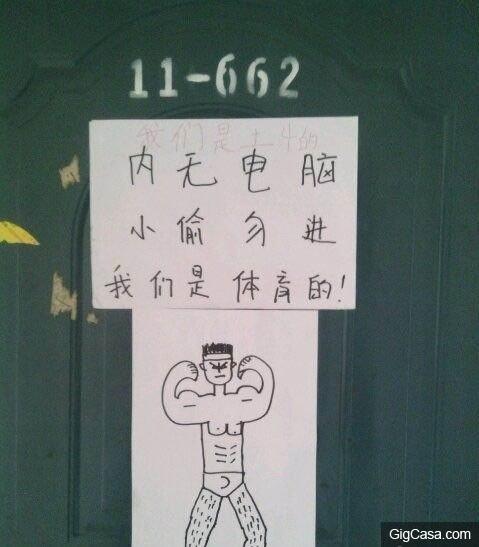 11-662
我们是土牛的
内无电脑
小偷勿进
我们是体育的!
GigCasa.com